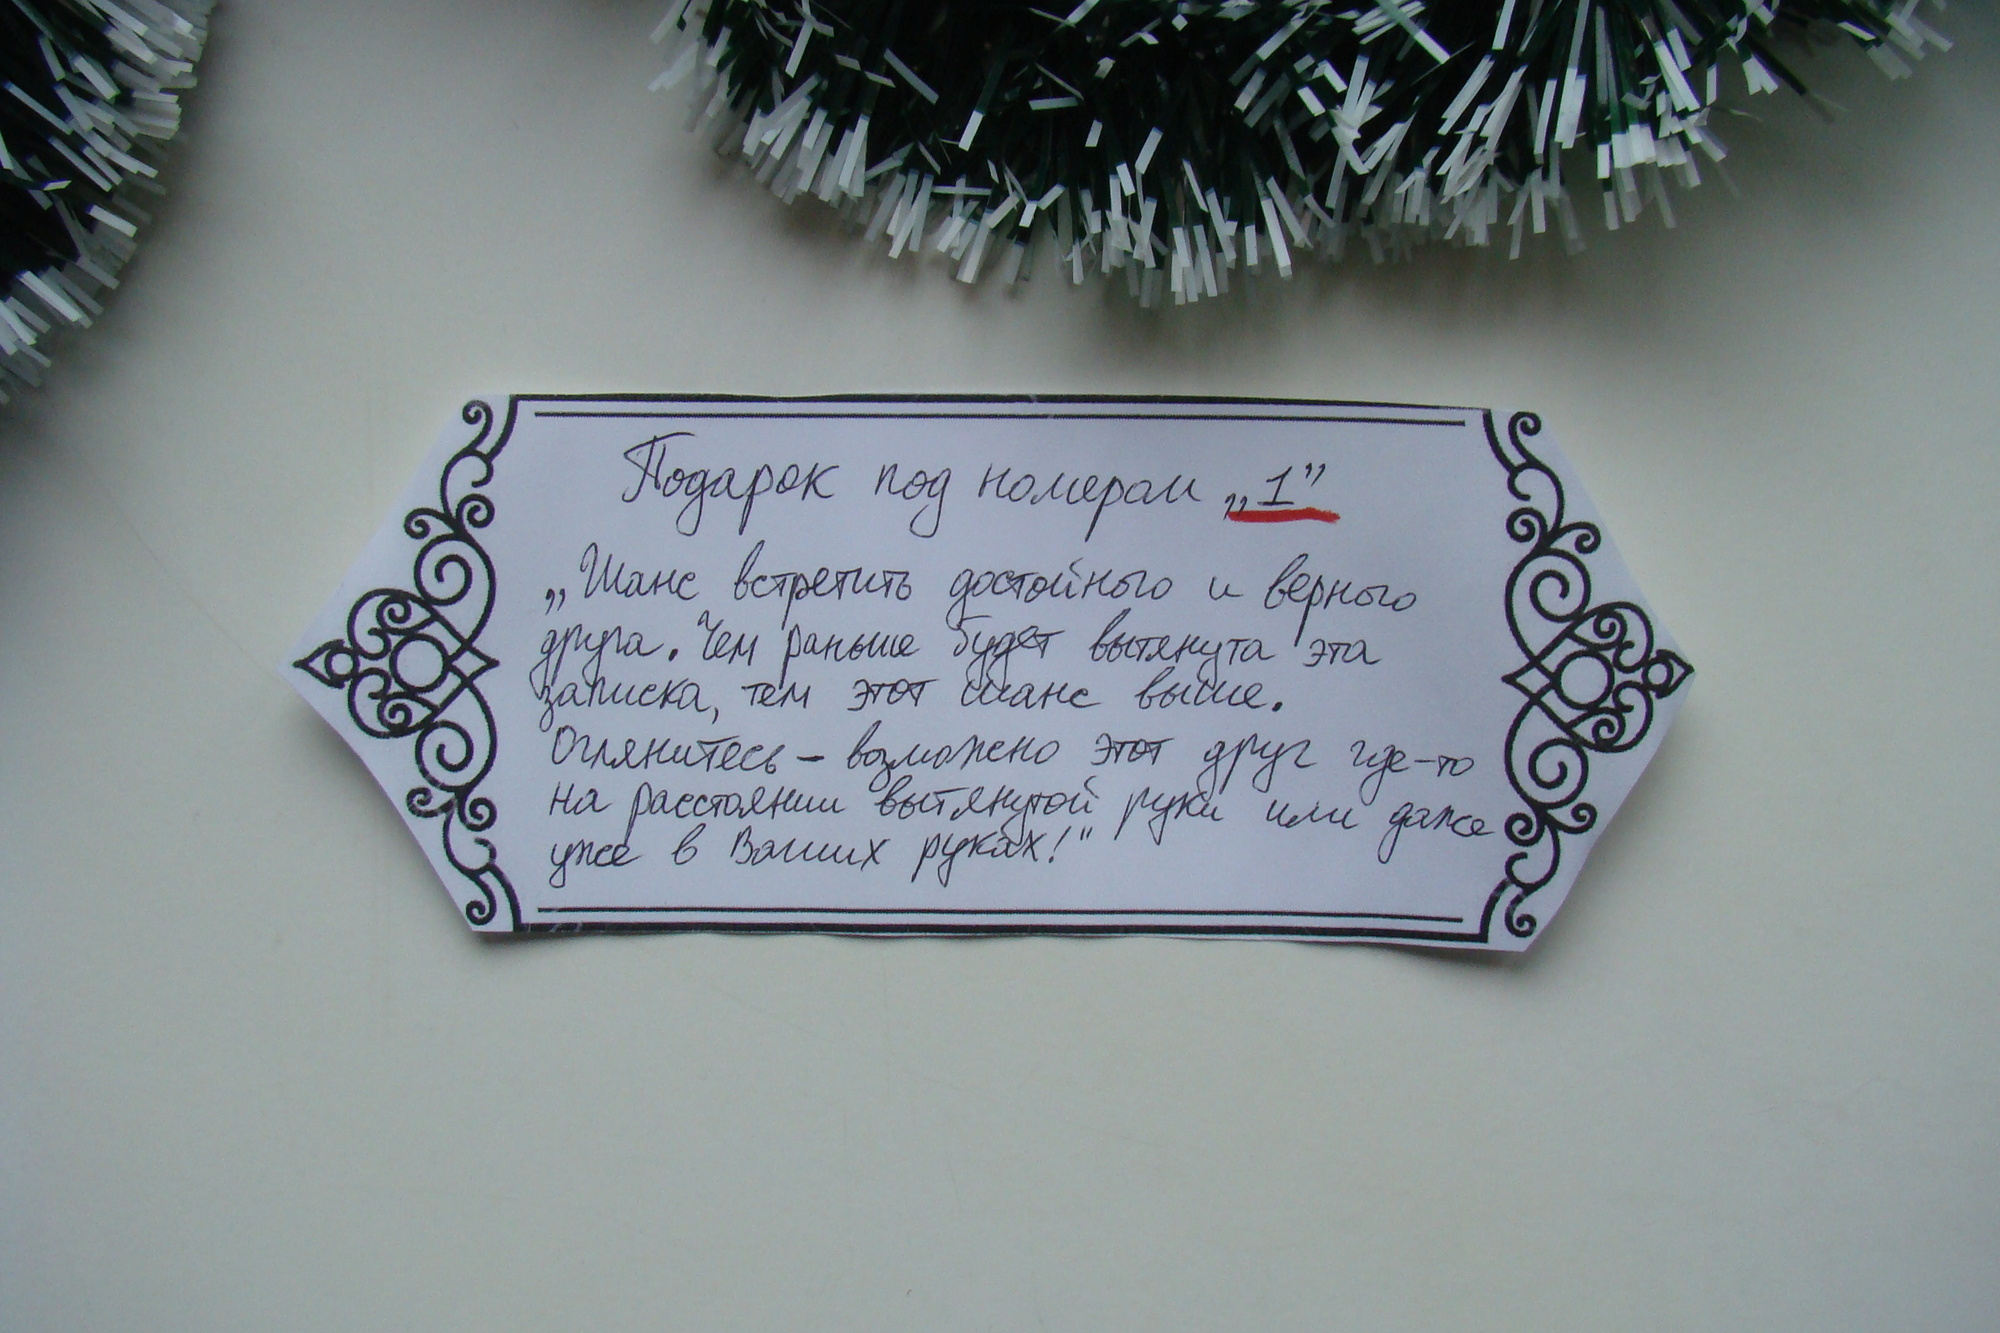 Подарок под номером „1”
„Шанс встретить достойного и верного
друга. Чем раньше будет вытянута эта
записка, тем этот шанс выше.
Оглянитесь – возможно этот друг где-то
на расстоянии вытянутой руки или даже
уже в Ваших руках!"